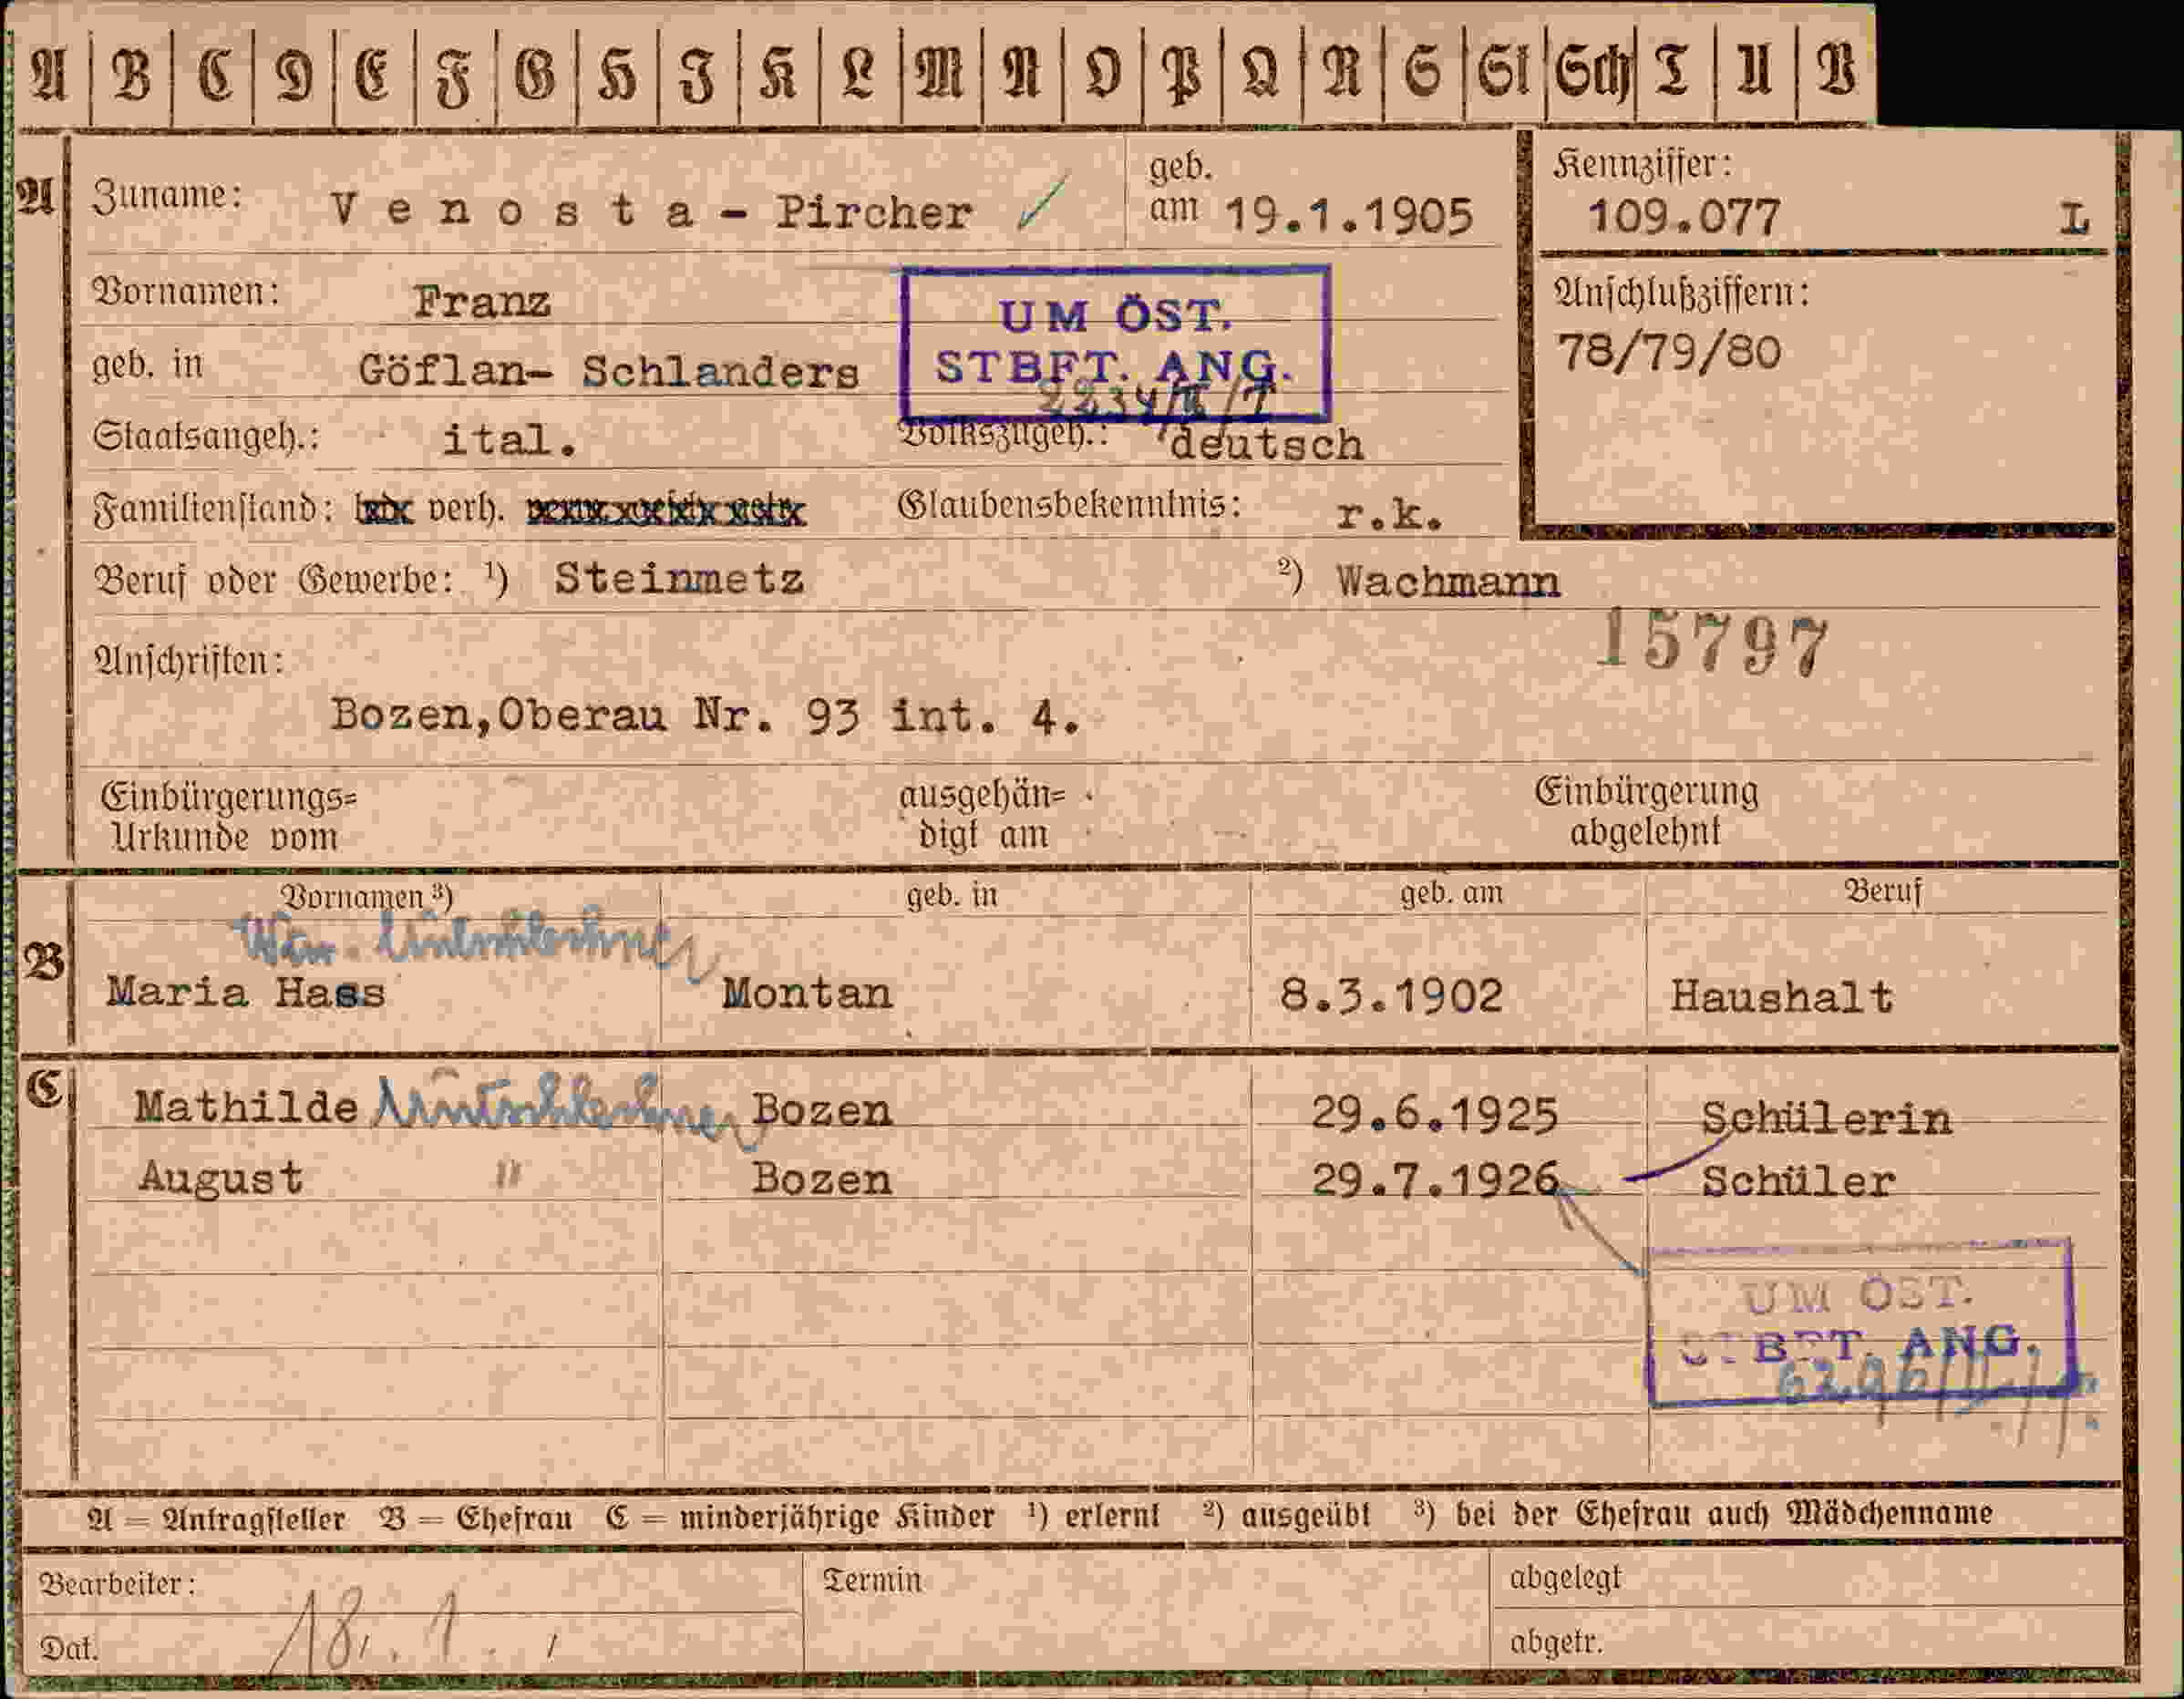 A B C D E F G H J K L M N O P Q R S St Sch T U V
A Zuname: Venosta - Pircher geb. am 19.1.1905
Kennziffer: 109.077 L
Vornamen: Franz
UM ÖST. STBFT. ANG.
Anschlußziffern: 78/79/80
geb. in Göflan- Schlanders
Staatsangeh.: ital. Volkszugeh.: deutsch
Familienstand: verh. Glaubensbekenntnis: r.k.
Beruf oder Gewerbe: ¹) Steinmetz ²) Wachmann
15797
Anschriften:
Bozen,Oberau Nr. 93 int. 4.
Einbürgerungs= ausgehän= Einbürgerung
Urkunde vom digt am abgelehnt
Vornamen ³) geb. in geb. am Beruf
B Maria Hass Montan 8.3.1902 Haushalt
C Mathilde Bozen 29.6.1925 Schülerin
August " Bozen 29.7.1926 Schüler
UM ÖST.
STBFT. ANG.
A = Antragsteller B = Ehefrau C = minderjährige Kinder ¹) erlernt ²) ausgeübt ³) bei der Ehefrau auch Mädchenname
Bearbeiter: Termin abgelegt
Dat. 18. 1. abgetr.